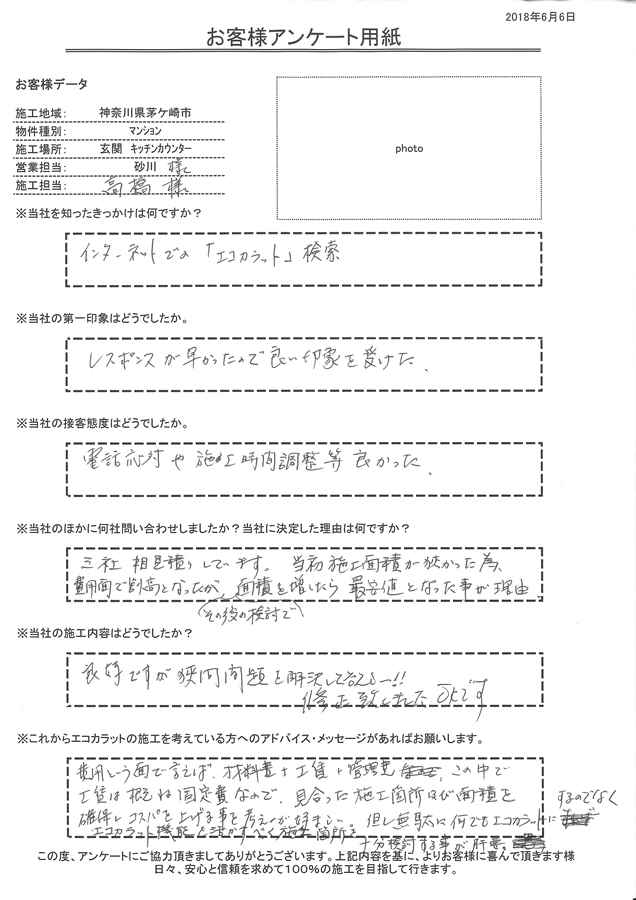 2018年6月6日
お客様アンケート用紙
お客様データ
施工地域： 神奈川県茅ケ崎市
物件種別： マンション
施工場所： 玄関 キッチンカウンター
営業担当： 砂川 様
施工担当： 高橋 様
photo
※当社を知ったきっかけは何ですか？
インターネットでの「エコカラット」検索
※当社の第一印象はどうでしたか。
レスポンスが早かったので良い印象を受けた．
※当社の接客態度はどうでしたか。
電話応対や施工時間調整等良かった．
※当社のほかに何社問い合わせしましたか？当社に決定した理由は何ですか？
三社 相見積りしています。当初施工面積が狭かった為、
費用面で割高となったが、面積を増したら最安値となった事が理由
(その後の検討で)
※当社の施工内容はどうでしたか？
良好ですが狭間問題を解決して
修正致しました OKです
※これからエコカラットの施工を考えている方へのアドバイス・メッセージがあればお願いします。
費用という面で言えば、材料費＋工賃＋管理費 この中で
工賃は概ね固定費なので、見合った施工箇所及び面積を
確保しコスパを上げる事を考えるのが好ましい。但し無駄に何でもエコカラットに するのでなく
エコカラット機能を活かすべく施工箇所を
十分検討する事が肝要。
この度、アンケートにご協力頂きましてありがとうございます。上記内容を基に、よりお客様に喜んで頂きます様
日々、安心と信頼を求めて１００％の施工を目指して行きます。